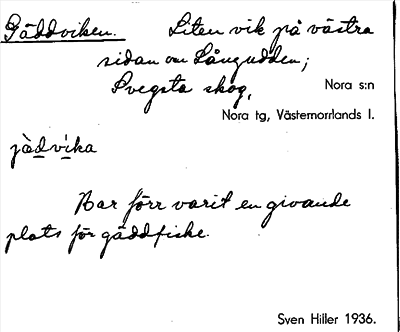 Gäddviken. Liten vik på västra
sidan om Långudden;
Svegsta skog,
Nora s:n
Nora tg, Västernorrlands l.
jàdvika
Har förr varit en givande
plats för gäddfiske.
Sven Hiller 1936.